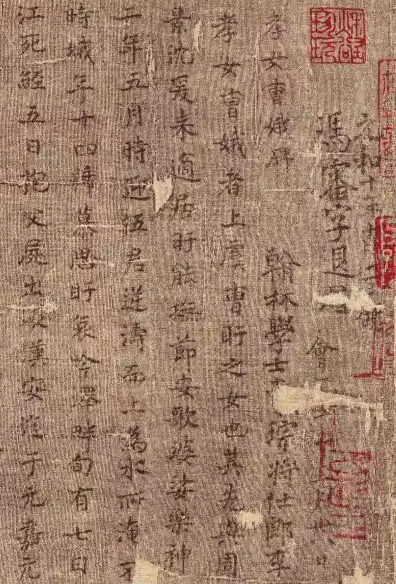 元和十年
馮審字退思
會
孝女曹娥碑
翰林學士 將仕郎平
孝女曹娥者上虞曹盱之女也其先與周
沈爰来適居盱能撫節安歌婆娑樂神
二年五月時迎伍君逆濤而上為水所淹不
時娥年十四號慕思盱哀吟澤畔旬有七日
江死經五日抱父屍出以漢安迄于元嘉元